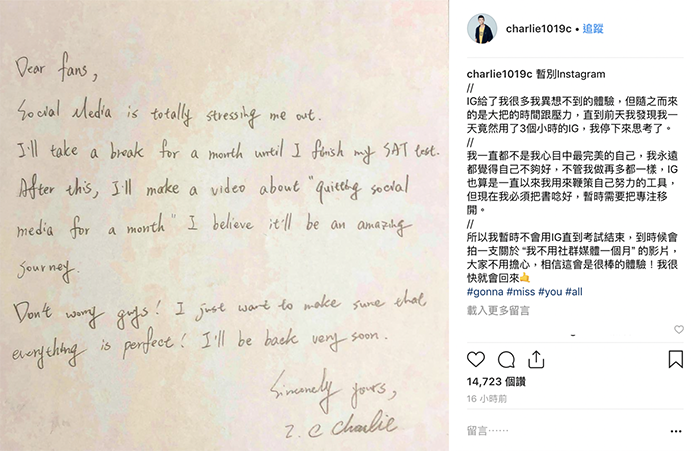 Dear fans,
Social Media is totally stressing me out.
I'll take a break for a month until I finish my SAT test.
After this, I'll make a video about "quitting social
media for a month" I believe it'll be an amazing
journey.
Don't worry guys! I just want to make sure that
everything is perfect! I'll be back very soon.
Sincerely yours,
Z.C Charlie
charlie1019c • 追蹤
charlie1019c 暫別Instagram
//
IG給了我很多我異想不到的體驗，但隨之而來
的是大把的時間跟壓力，直到前天我發現我一
天竟然用了3個小時的IG，我停下來思考了。
//
我一直都不是我心目中最完美的自己，我永遠
都覺得自己不夠好，不管我做再多都一樣，IG
也算是一直以來我用來鞭策自己努力的工具，
但現在我必須把書唸好，暫時需要把專注移
開。
//
所以我暫時不會用IG直到考試結束，到時候會
拍一支關於 “我不用社群媒體一個月” 的影片，
大家不用擔心，相信這會是很棒的體驗！我很
快就會回來🤙
#gonna #miss #you #all
載入更多留言
14,723 個讚
16 小時前
留言⋯⋯